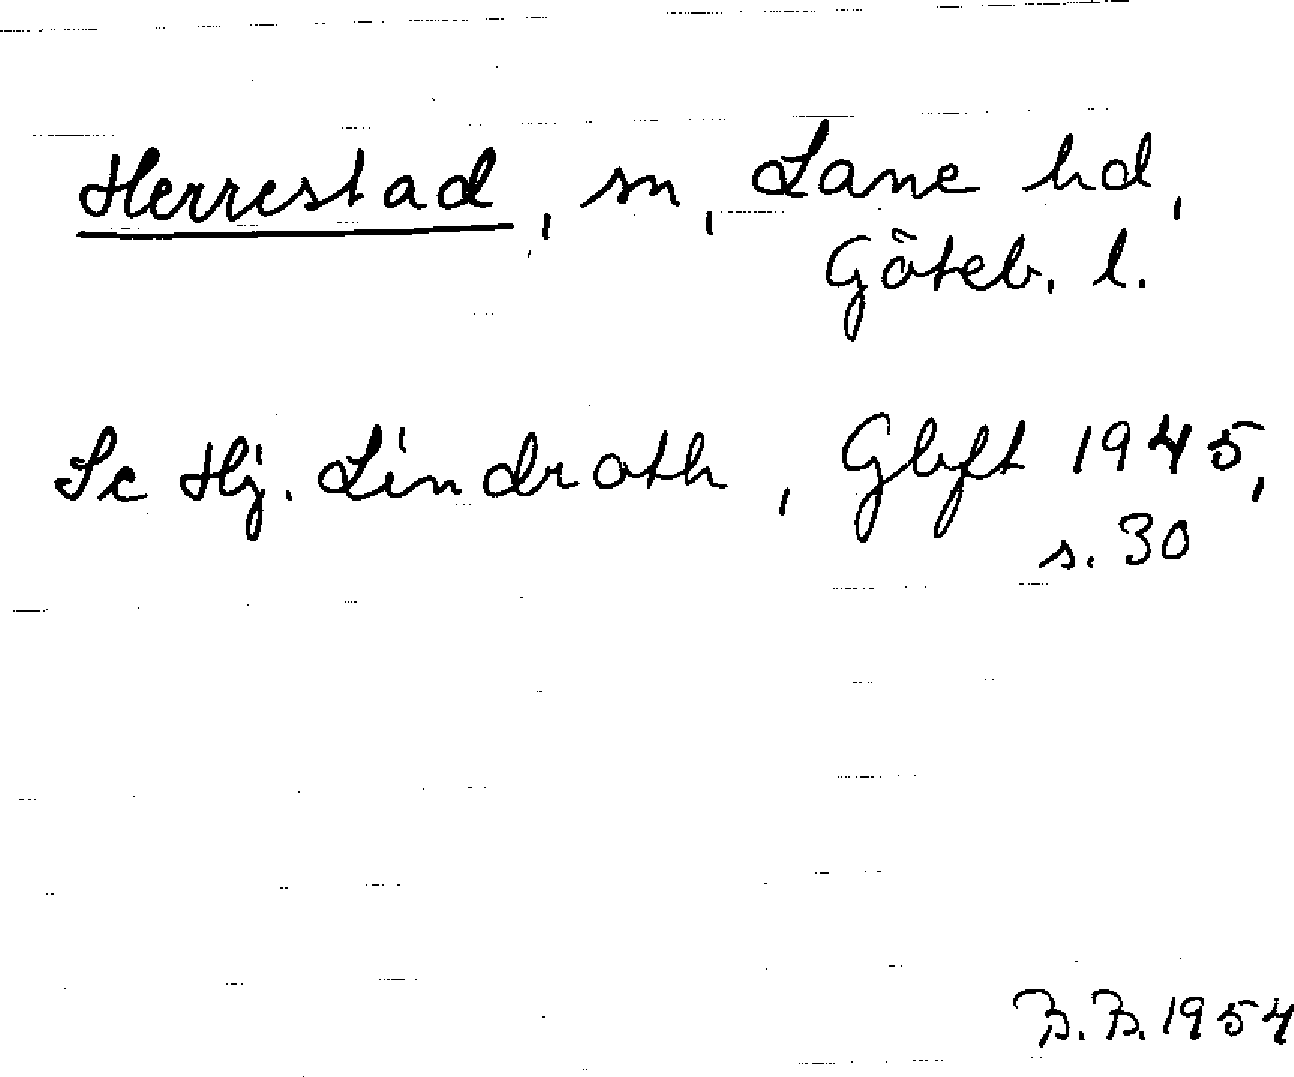 Herrestad, sn, Lane hd,
Göteb. l.
Se Hj. Lindroth, Gbgft 1945,
s. 30
B.B. 1954